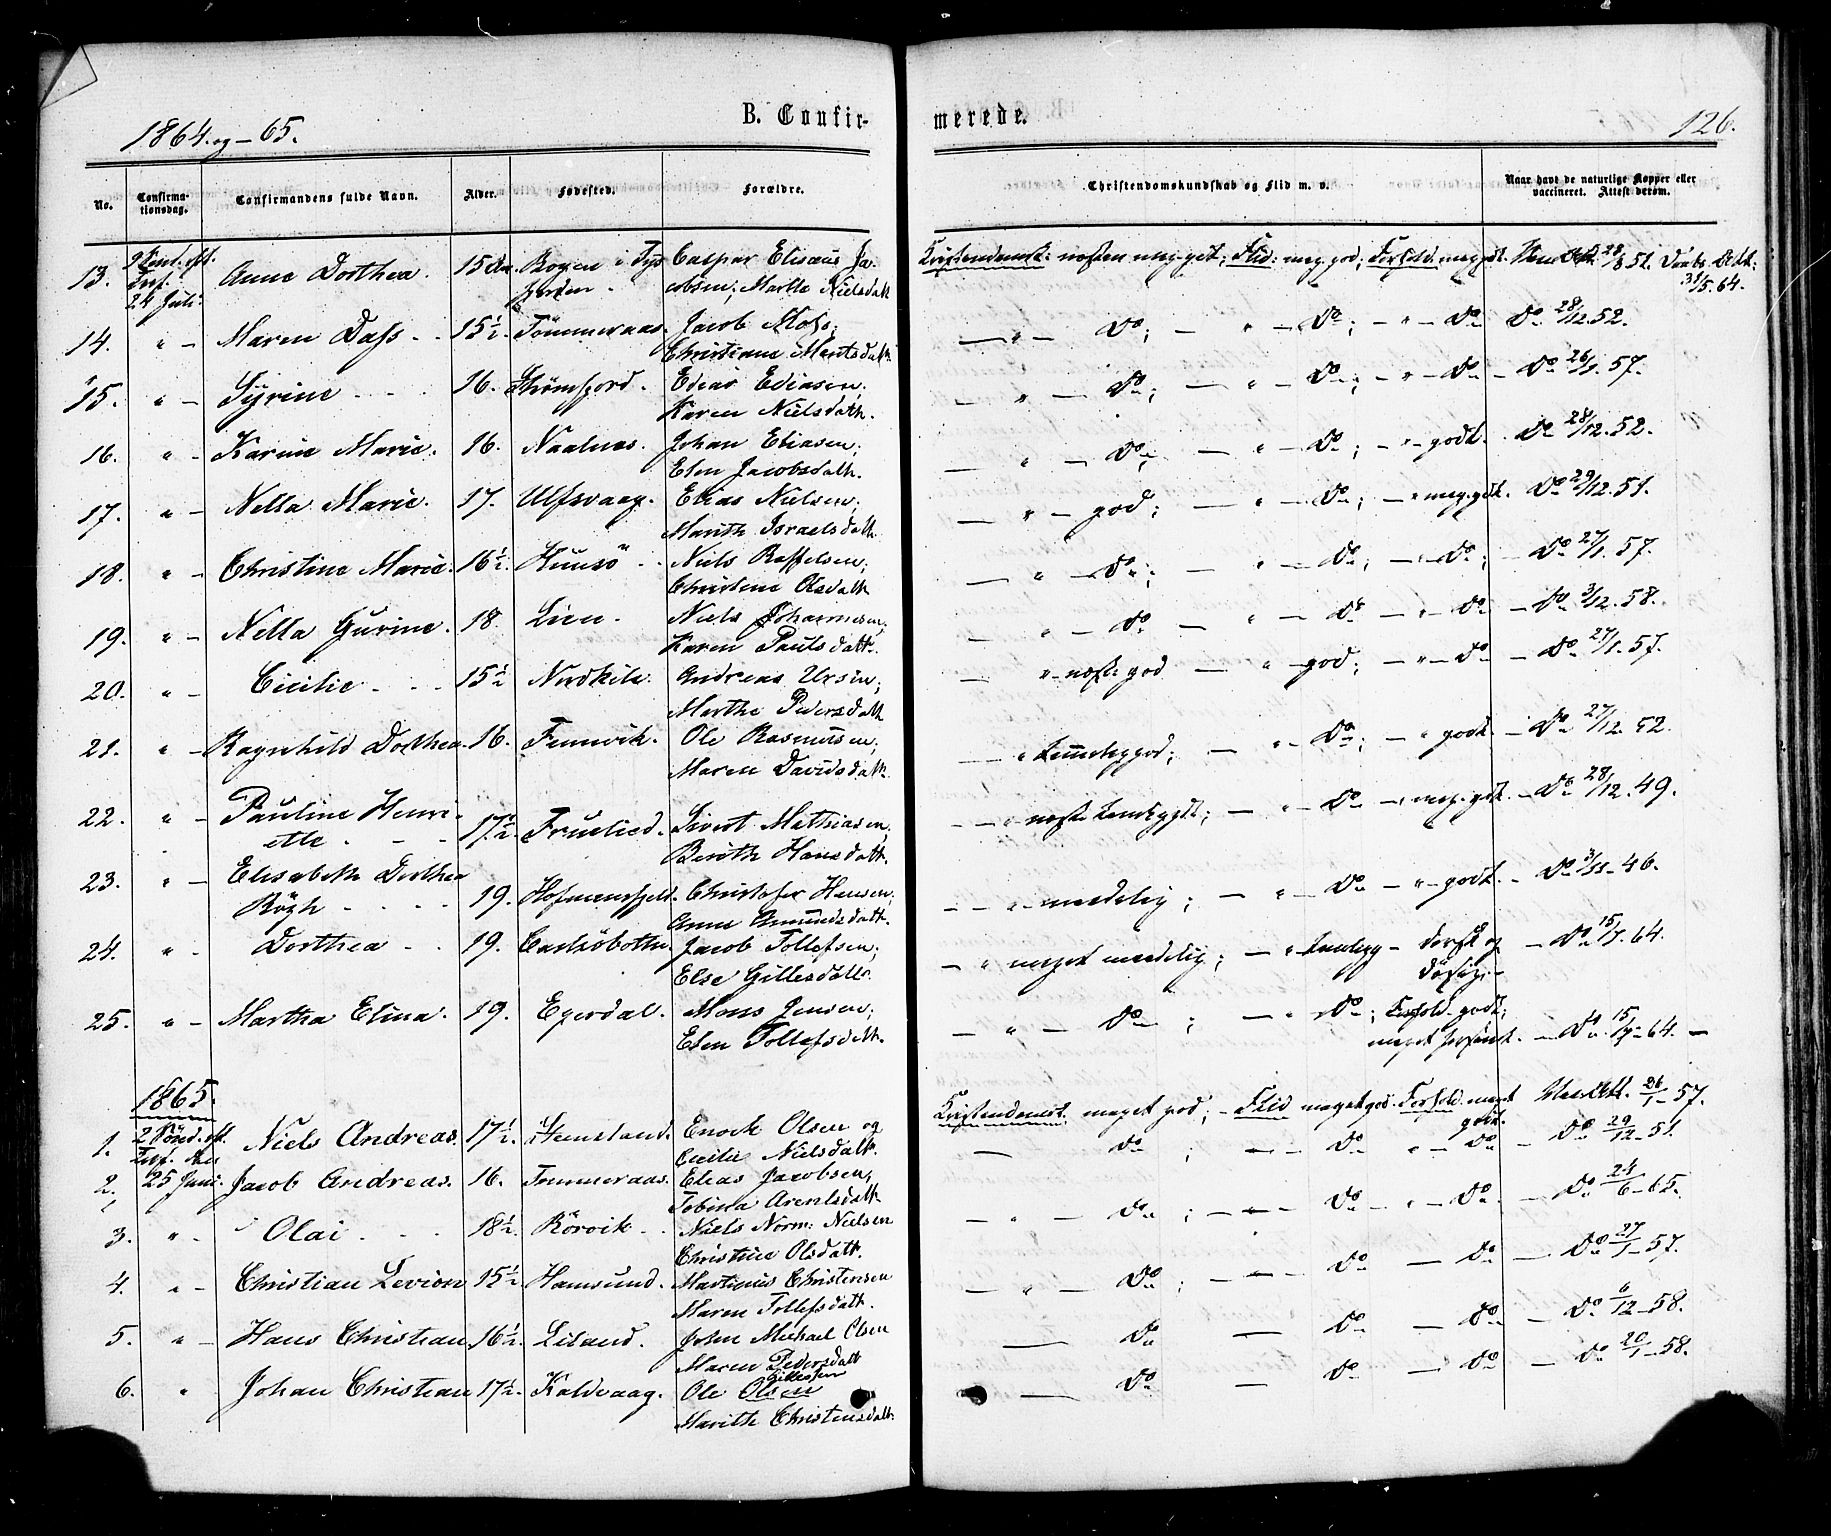 1864. og - 65.
B. Confirmerede.
126.
No.
Confirmationsdag.
Confirmandens fulde Navn.
Alder.
Fødested.
Forældre.
Christendomskundskab og Flid m. v.
Naar havt de naturlige Kopper eller vaccineret. Attest derom.
13. 24 Juli Anne Dorthea. 15 Bogen i Tysfjorden. Caspar Elisæus Jacobsen; Marthe Nielsdatt. meg. get; Flid: meg. god; Forhold: 28/8 51. 31/5. 64.
14. " - Maren Dass - - 15½. Tömmeraas. Jacob Mots; Christiane Mentsdatt. — " — Do; — " — Do; — " — Do Do 28/12. 52.
15. " - Syrine - - - 16. Edias Ediasen; Karen Nielsdatt. — " — Do; — " — Do; — " — Do — Do 26/1. 57.
16. " - Karine Marie. 16. Naalnes. Johan Eliasen; Elen Jacobsdatt. — " — Do; — " — Do; — " - godt. Do 28/12. 52.
17. " - Nella Marie. 17. Ulfsvaag. Elias Nielsen; Marith Israelsdatt. — " — god; — " — Do; — " meg. gdt. Do 29/12. 51.
18. " - Christine Marie. 16½. Hunsö - - Niels Roffelsen; Christine Olsdatt. — " — Do; — " — Do; — Do; — Do 27/1. 57.
19. " - Nella Gurine. 18. Lien. Niels Johannesen; Karen Paulsdatt. — " — Do — " — Do — " — Do — Do 3/12. 58.
20. " - Cicilie - - - 15½ Nordkil. Andreas Ursin; Marthe Pedersdatt. — " - næst. god — " - god; — " — Do — Do 27/1. 57.
21. " - Ragnhild Dorthea. 16. Finnvik. Ole Rasmusen; Maren Davidsdatt. — " temelig god; — " — Do; — " godt. — Do 27/12. 52.
22. " - Pauline Henriette - - - 17½. Fruelied. Sivert Mathiasen; Berith Hansdatt. — " — Do — meg. gdt. — Do 28/12. 49.
23. " - Elisabeth Dorthea Rözh - - - - 19. Hofmannsfjeld. Christofer Hansen; Anne Amundsdatt. — " - maadelig; — " — Do — " - godt. — Do 3/11 - 46.
24. " - Dorthea - - 19. Carlsöbotten. Jacob Tollefsen; Else Gillesdatt. — " meget maadelig; — " temlig - dorsk og dösig. — Do 15/7. 64.
25. " - Martha Elina. 19. Egerdal. Mons Jensen; Elen Tollefsdatt. — " — Do; — " Do; Forhold - godt; meget — Do 15/7 - 64. —
1865.
1. 25 Juni. Niels Andreas. 17½. Stensland. Enock Olsen og Cecilie Nielsdatt. meget god; — Flid meget god. Forhold. meget godt. 26/1 - 57.
2. Jacob Andreas. 16. Tømmeraas. Elias Jacobsen, Tobina Arentsdatt. — Do; — — Do " — Do — Do 29/12 - 51.
3. " - Olai - - - 18½. Rörvik - - Niels Norm: Nielsen Christine Olsdatt. — " — Do; — " — Do - " — Do — Do 24/6 - 65.
4. " - Christian Levion 15½. Hamsund. Martinus Christensen Maren Tollefsdatt. — " — Do; — " — Do — Do — Do 27/1 - 57.
5. " - Hans Christian 16½. Liland. John Michael Olsen Maren Pedersdatt — Do — Do — Do — Do 6/12 - 58.
6. " Johan Christian 17½. Kaldvaag. Ole Olsen Gillessen Marith Christensdatt. — Do — Do — Do — Do 20/1 - 58.